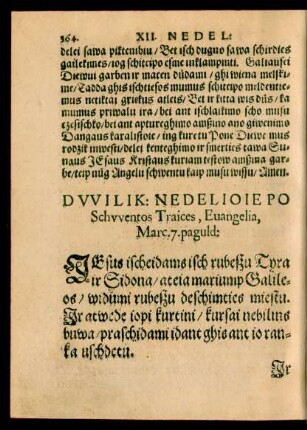 364. XII. NEDEL:
delei sawa piktenibiu / Bet isch dugno sawa schirdies
gailekimes / iog schiteipo esme inklampinti. Galiausei
Diewui garben ir macen důdami / ghi wiena melski-
me / Sadda ghis ischtiesos mumus schiteipo meldentie-
mus netiktai griekus atleis / Bet ir kitta wis důs / ka
mumus priwalu ira / bei ant ischlaikimo scho musu
czesischko / bei ant aptureghimo amßino ano giwenimo
Dangaus karalistoie / ing kure tu Pone Diewe mus
rodzit inwesti / delei kenteghimo ir smerties tawa Su-
naus JEsaus Kristaus kuriam testow amßina gar-
be / teip nůg Angelu schwentu kaip musu wissu / Amen.
DVVILIK: NEDELIOIE PO
Schvventos Traices, Euangelia,
Marc. 7. paguld:
JEsus ischeidams isch rubeßu Tyra
ir Sidona / ateia mariump Galile-
os / widumi rubeßu deschimties miestu.
Jr atwede iopi kurtini / kursai nebilins
buwa / praschidami idant ghis ant io ran-
ka uschdetu.
Jr